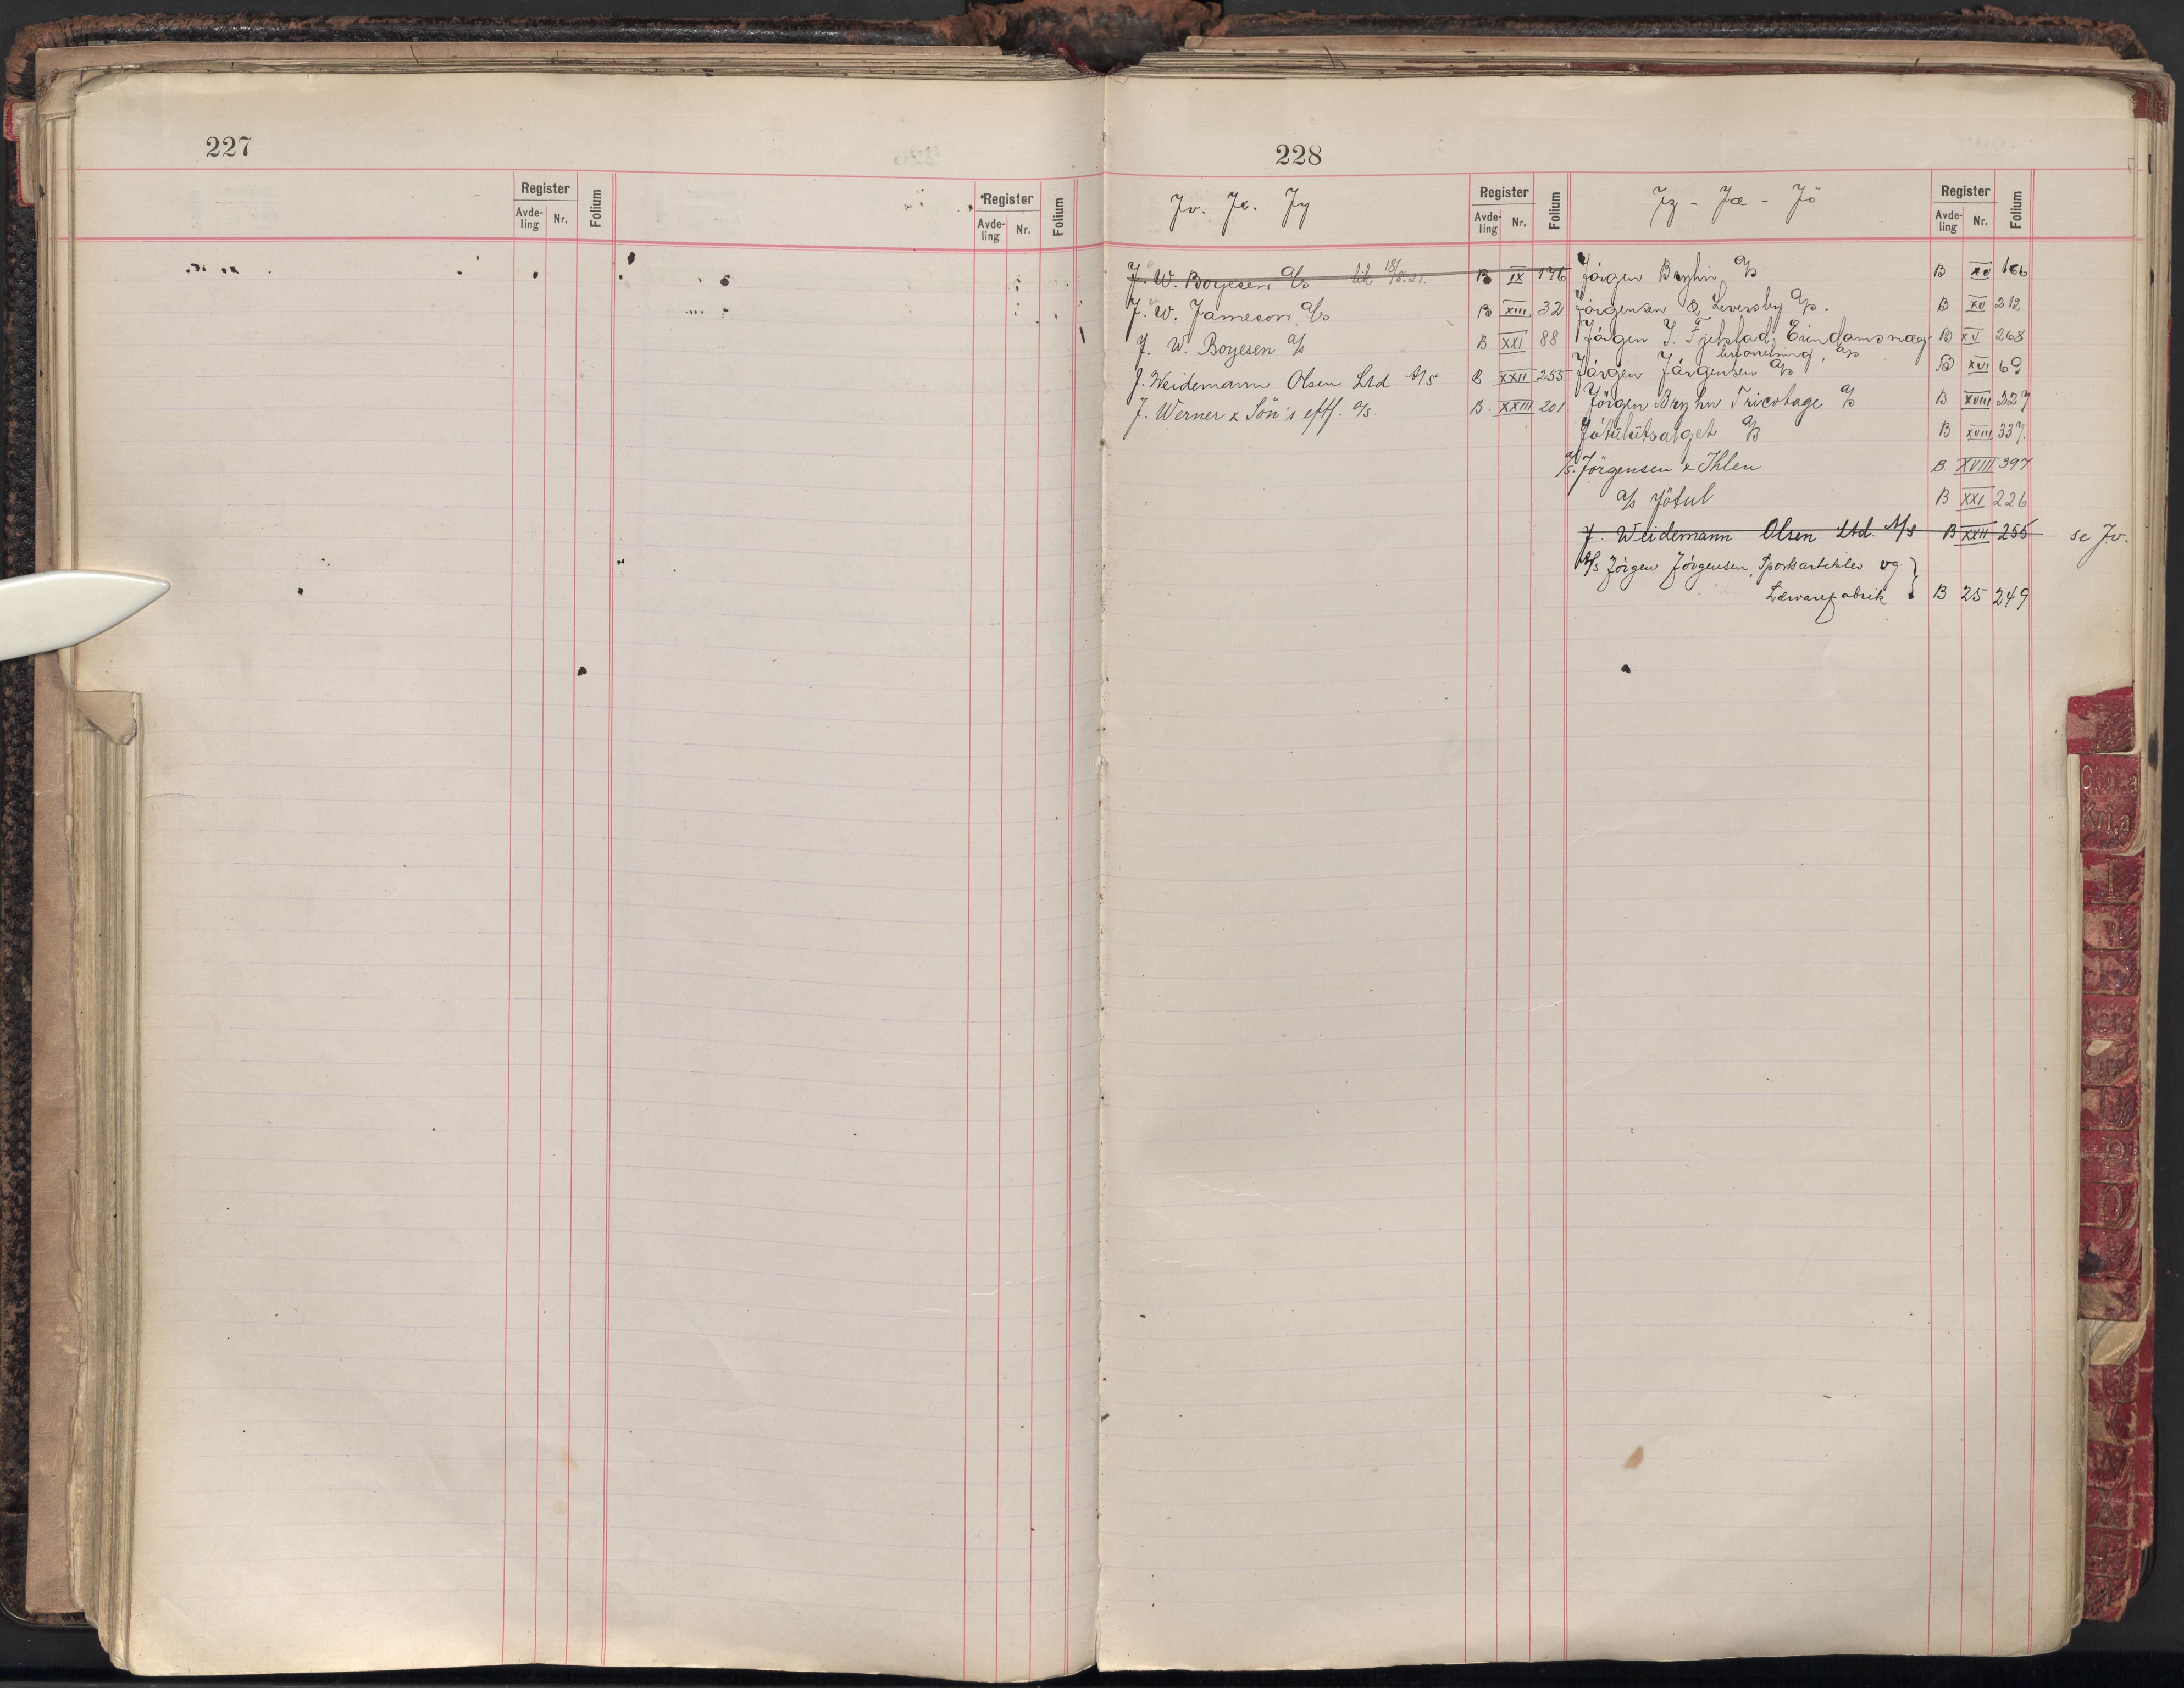 227
Register
Avde-
ling
Nr.
Folium
Register
Avde-
ling
Nr.
Folium
228
Jv. Jx. Jy
Register
Avde-
ling
Nr.
Folium
J. W. Boyesen a/s 18/8.21. B IX 176
J. W. Jameson a/s B XIII 32
J. W. Boyesen a/s B XXI 88
J. Weidemann Olsen Ltd A/s B XXII 255
J. Werner & Sön's eftf. a/s. B. XXIII 201
Jz - Jæ - Jö
Register
Avde-
ling
Nr.
Folium
Jörgen Bryhn a/s B XV 166
Jörgensen & Leversby a/s. B XV 212
Jörgen J. Fjelstad, Eiendoms og B XV 268
a/s
Jörgen Jörgensen a/s B XVI 69
Jörgen Bryhn Tricotage a/s B XVIII 327
Jötulutsalget a/s B XVIII 337.
a/s. Jörgensen & Ihlen B XVIII 397
a/s Jötul B XXI 226
J. Weidemann Olsen Ltd. A/s B XXII 255 se Jv.
A/s Jörgen Jörgensen, Sportsartikler og
Lærvarefabrik B 25 249